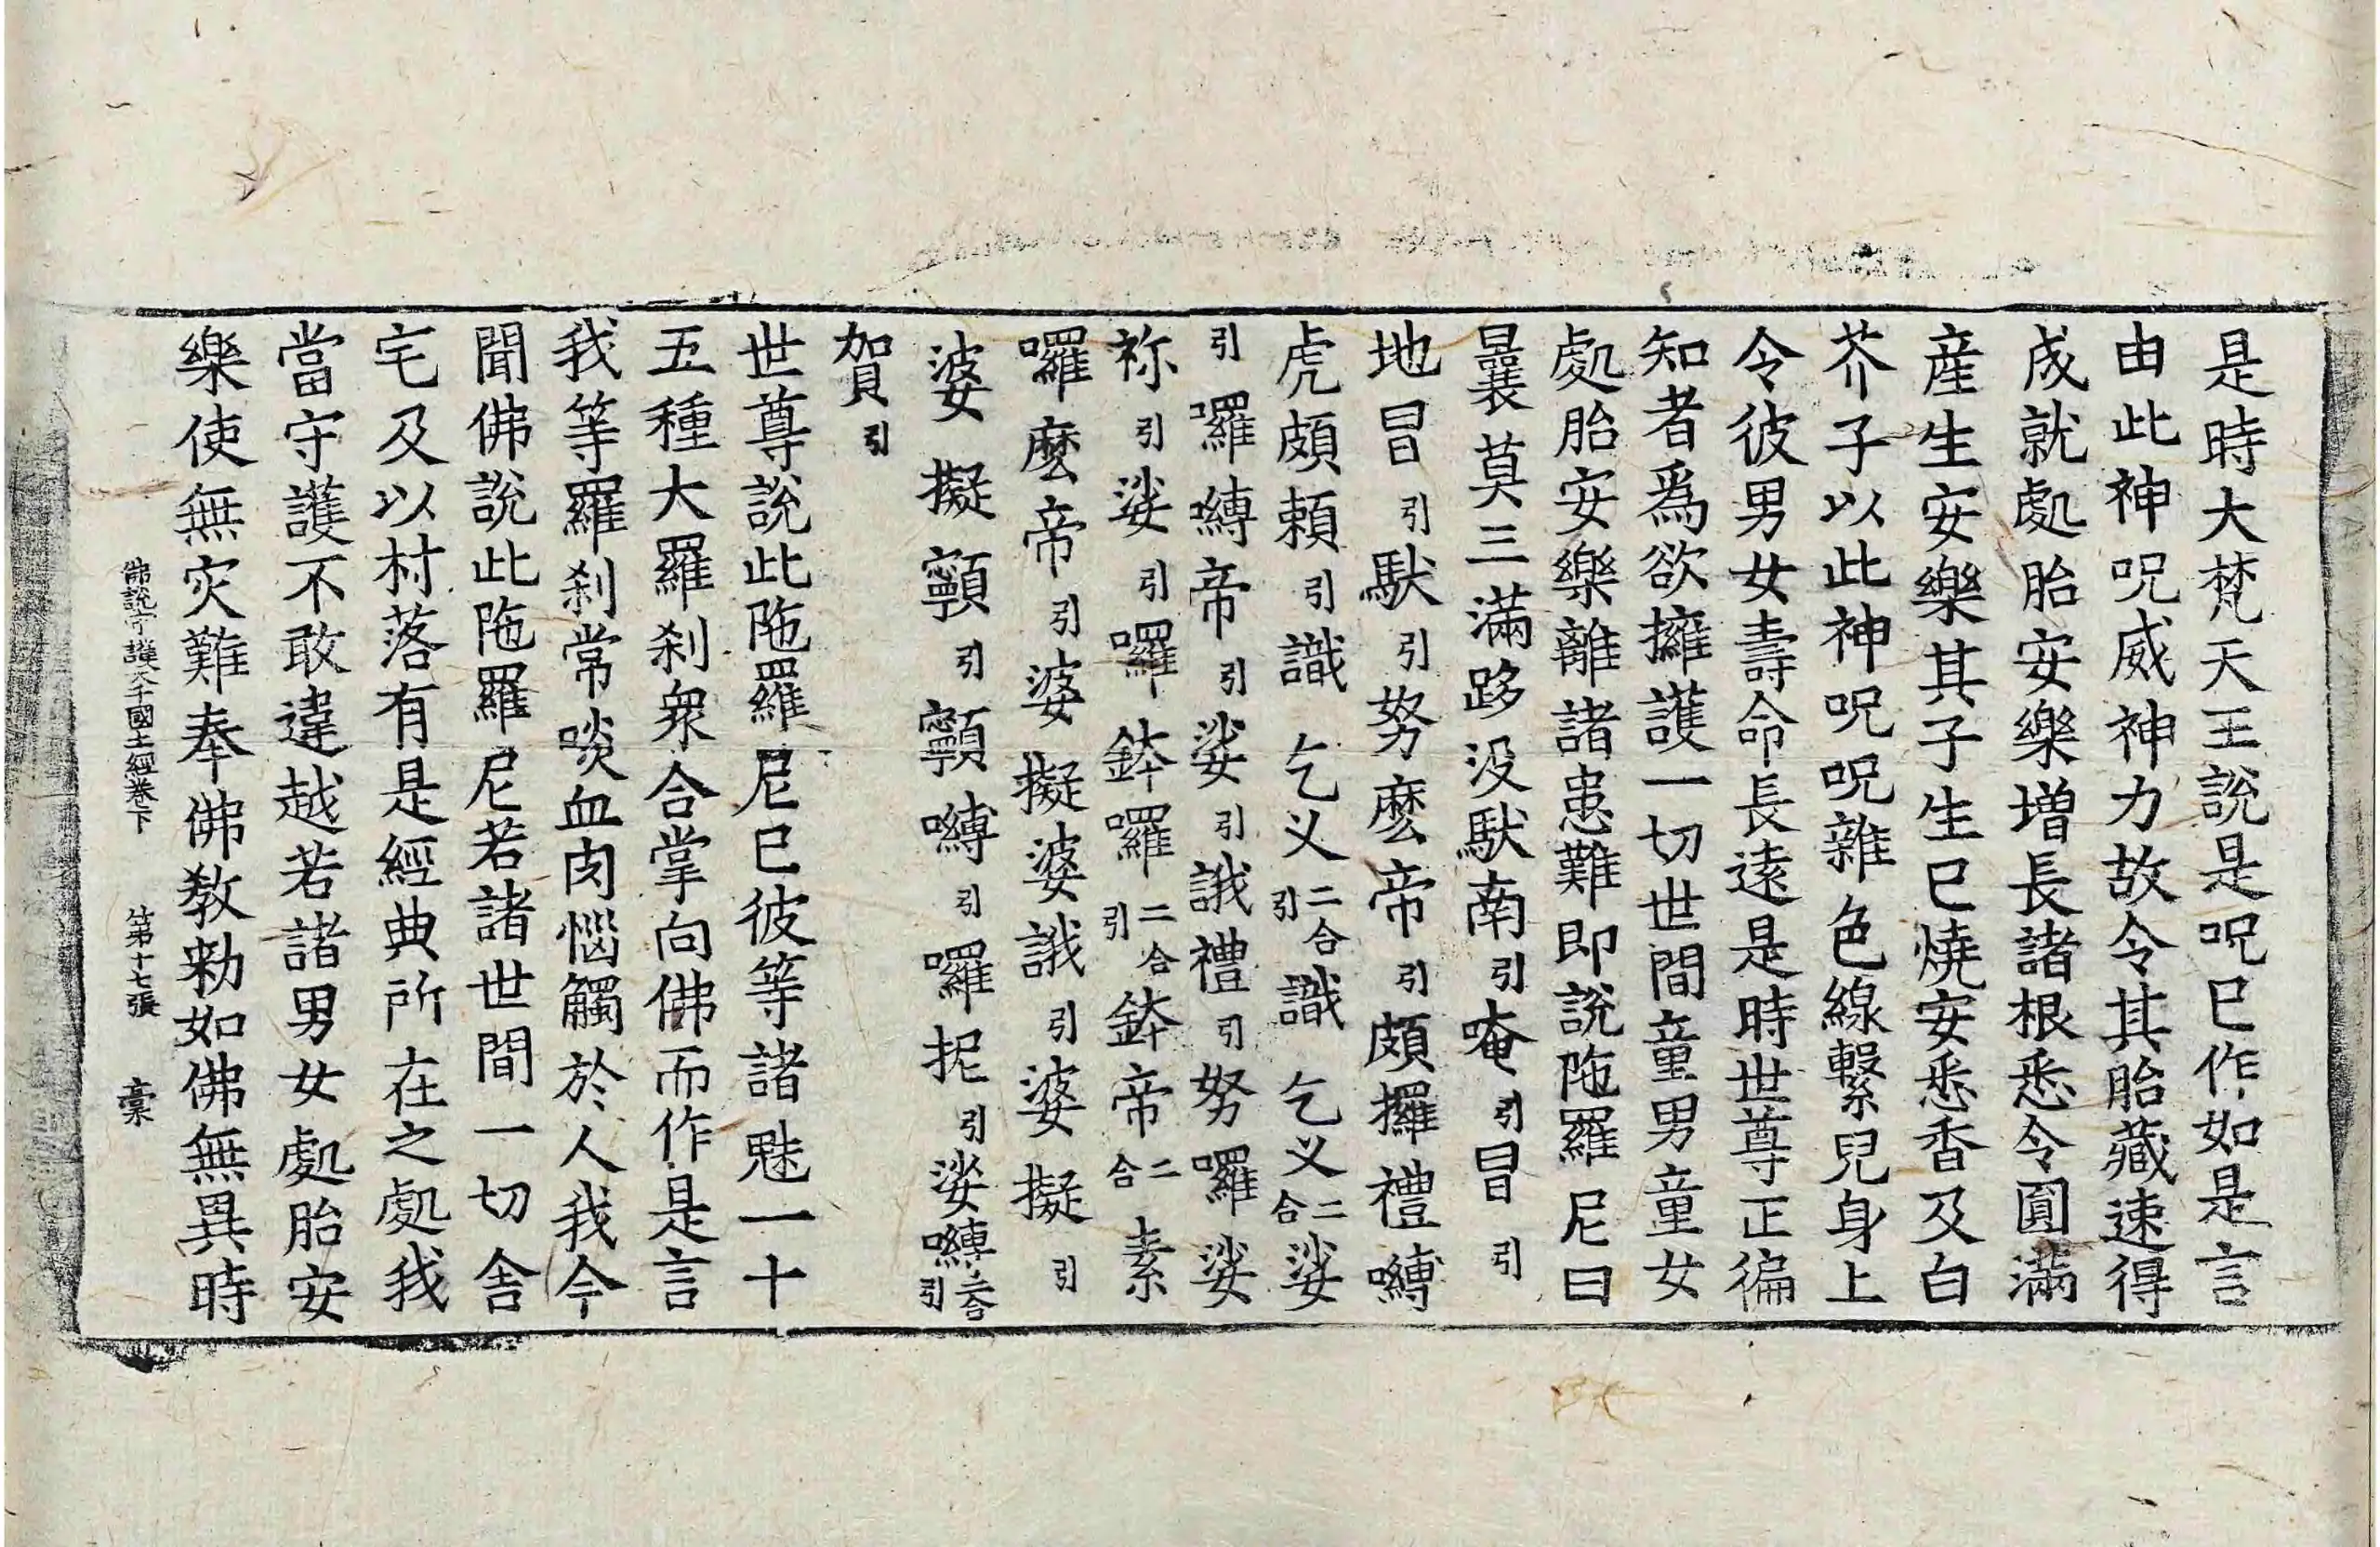 是時大梵天王說是呪已作如是言
由此神呪威神力故令其胎藏速得
成就處胎安樂增長諸根悉令圓滿
産生安樂其子生已燒安悉香及白
芥子以此神呪呪雜色線繫兒身上
令彼男女壽命長遠是時世尊正徧
知者爲欲擁護一切世間童男童女
處胎安樂離諸患難即說陁羅尼曰
曩莫三滿跢没馱南引唵引冒引
地冒引馱引努麽帝引頗攞禮嚩
虎頗頼引識乞叉二合引識乞叉二合娑
引囉嚩帝引娑引誐禮引努囉娑
祢引娑引囉鉢囉二合引鉢帝二合素
囉麽帝引婆擬婆誐引婆擬引
婆擬顙引顙嚩引囉抳引娑嚩二合引
賀引
世尊說此陁羅尼已彼等諸魅一十
五種大羅刹衆合掌向佛而作是言
我等羅刹常啖血肉惱觸於人我今
聞佛說此陁羅尼若諸世間一切舍
宅及以村落有是經典所在之處我
當守護不敢違越若諸男女處胎安
樂使無灾難奉佛教勑如佛無異時
佛說守護大千國土經卷下 第十七張 槀